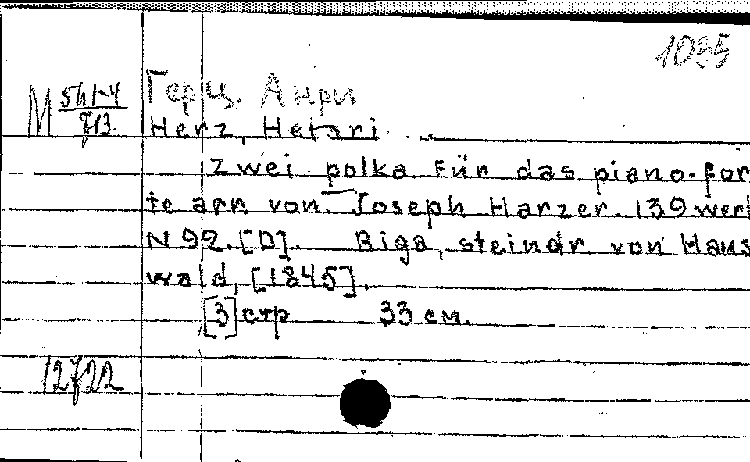 1095
M 561-4 Герц. Анри
713. Herz, Henri
Zwei polka für das piano-for
te arr. von Joseph Harzer. 139 werk
N 92. [D]. Riga, steindr von Haus
wald, [1845].
[3] стр 33 см.
12722